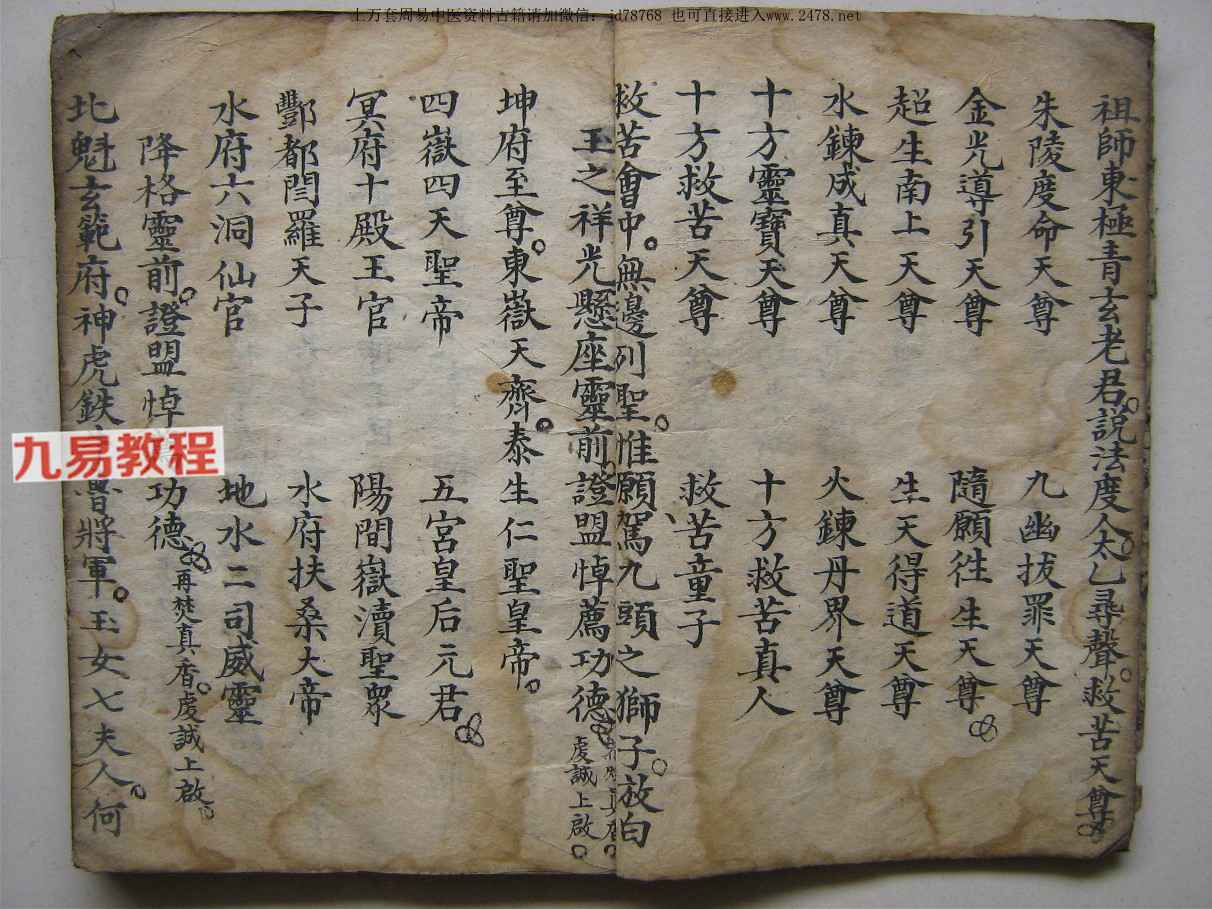 上万套周易中医资料古籍请加微信：jd78768 也可直接进入www.2478.net
祖師東極青玄老君。説法度人太乙尋聲。救苦天尊。
朱陵度命天尊 九幽拔罪天尊
金光導引天尊 隨願往生天尊
超生南上天尊 生天得道天尊
水鍊成真天尊 火鍊丹界天尊
十方靈寶天尊 十方救苦真人
十方救苦天尊 救苦童子
救苦會中。無邊列聖。惟願駕九頭之獅子。放白
玉之祥光懸座靈前。證盟悼薦功德。真香。虔誠上啟。
坤府至尊。東嶽天齊。泰生仁聖皇帝。
四嶽四天聖帝 五宮皇后元君。
冥府十殿王官 陽間嶽瀆聖衆
酆都閆羅天子 水府扶桑大帝
水府六洞仙官 地水二司威靈
降格靈前。證盟悼功德。再焚真香。虔誠上啟。
北魁玄範府。神虎鉄將軍。玉女七夫人。何
九易教程